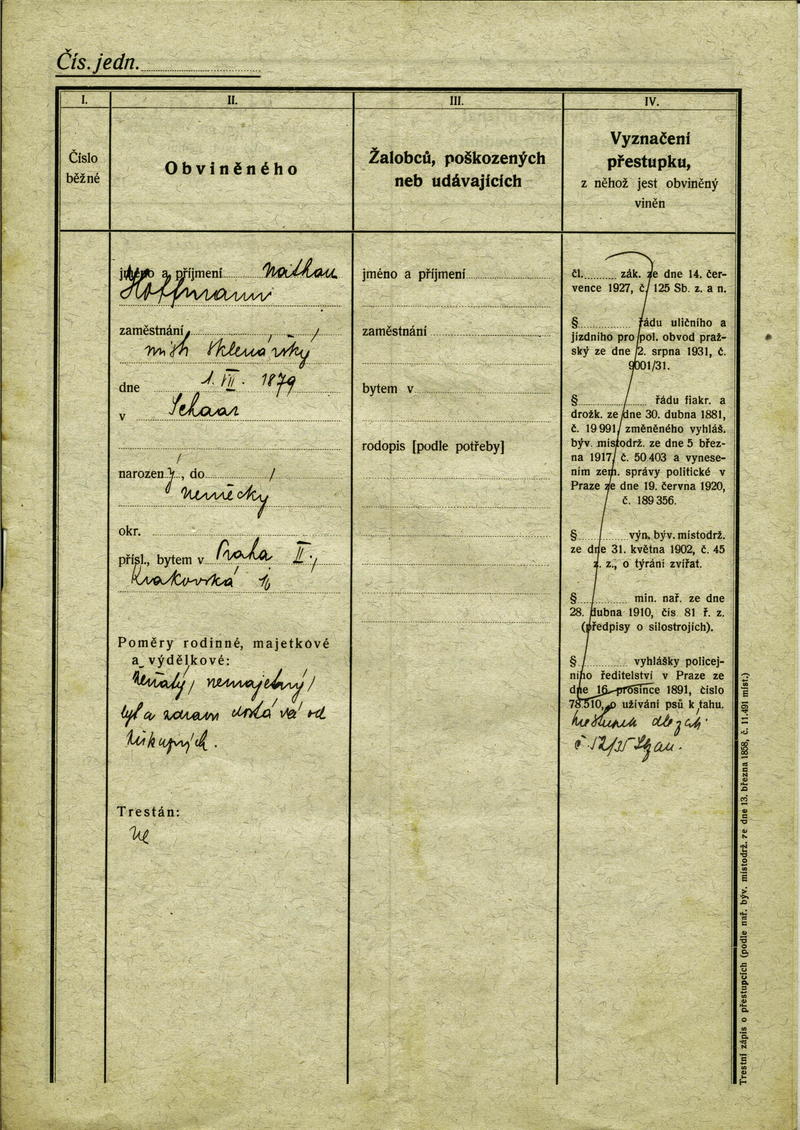 Čís. jedn.
I.
Číslo
běžné
II.
Obviněného
III.
Žalobců, poškozených
neb udávajících
IV.
Vyznačení
přestupku,
z něhož jest obviněný
viněn
jméno a příjmení Nathan
Hoffmann
zaměstnání
mistr sklenářský
dne 1. VII. 1879
v
narozen, do
německy
okr.
přísl., bytem v Praha II.,
Krakovská
Poměry rodinné, majetkové
a výdělkové:
Ženatý, nemajetný
Trestán:
Ne
jméno a příjmení
zaměstnání
bytem v
rodopis [podle potřeby]
čl. zák. ze dne 14. čer-
vence 1927, č. 125 Sb. z. a n.
§ řádu uličního a
jízdního pro pol. obvod praž-
ský ze dne 2. srpna 1931, č.
9001/31.
§ řádu fiakr. a
drožk. ze dne 30. dubna 1881,
č. 19991, změněného vyhláš.
býv. místodrž. ze dne 5 břez-
na 1917, č. 50403 a vynese-
ním zem. správy politické v
Praze ze dne 19. června 1920,
č. 189356.
§ výn. býv. místodrž.
ze dne 31. května 1902, č. 45
z. z., o týrání zvířat.
§ min. nař. ze dne
28. dubna 1910, čís 81 ř. z.
(předpisy o silostrojích).
§ vyhlášky policej-
ního ředitelství v Praze ze
dne 16. prosince 1891, číslo
78.510, o užívání psů k tahu.
Trestní zápis o přestupcích (podle nař. býv. místodrž. ze dne 13. března 1858, č. 11.491 míst.)